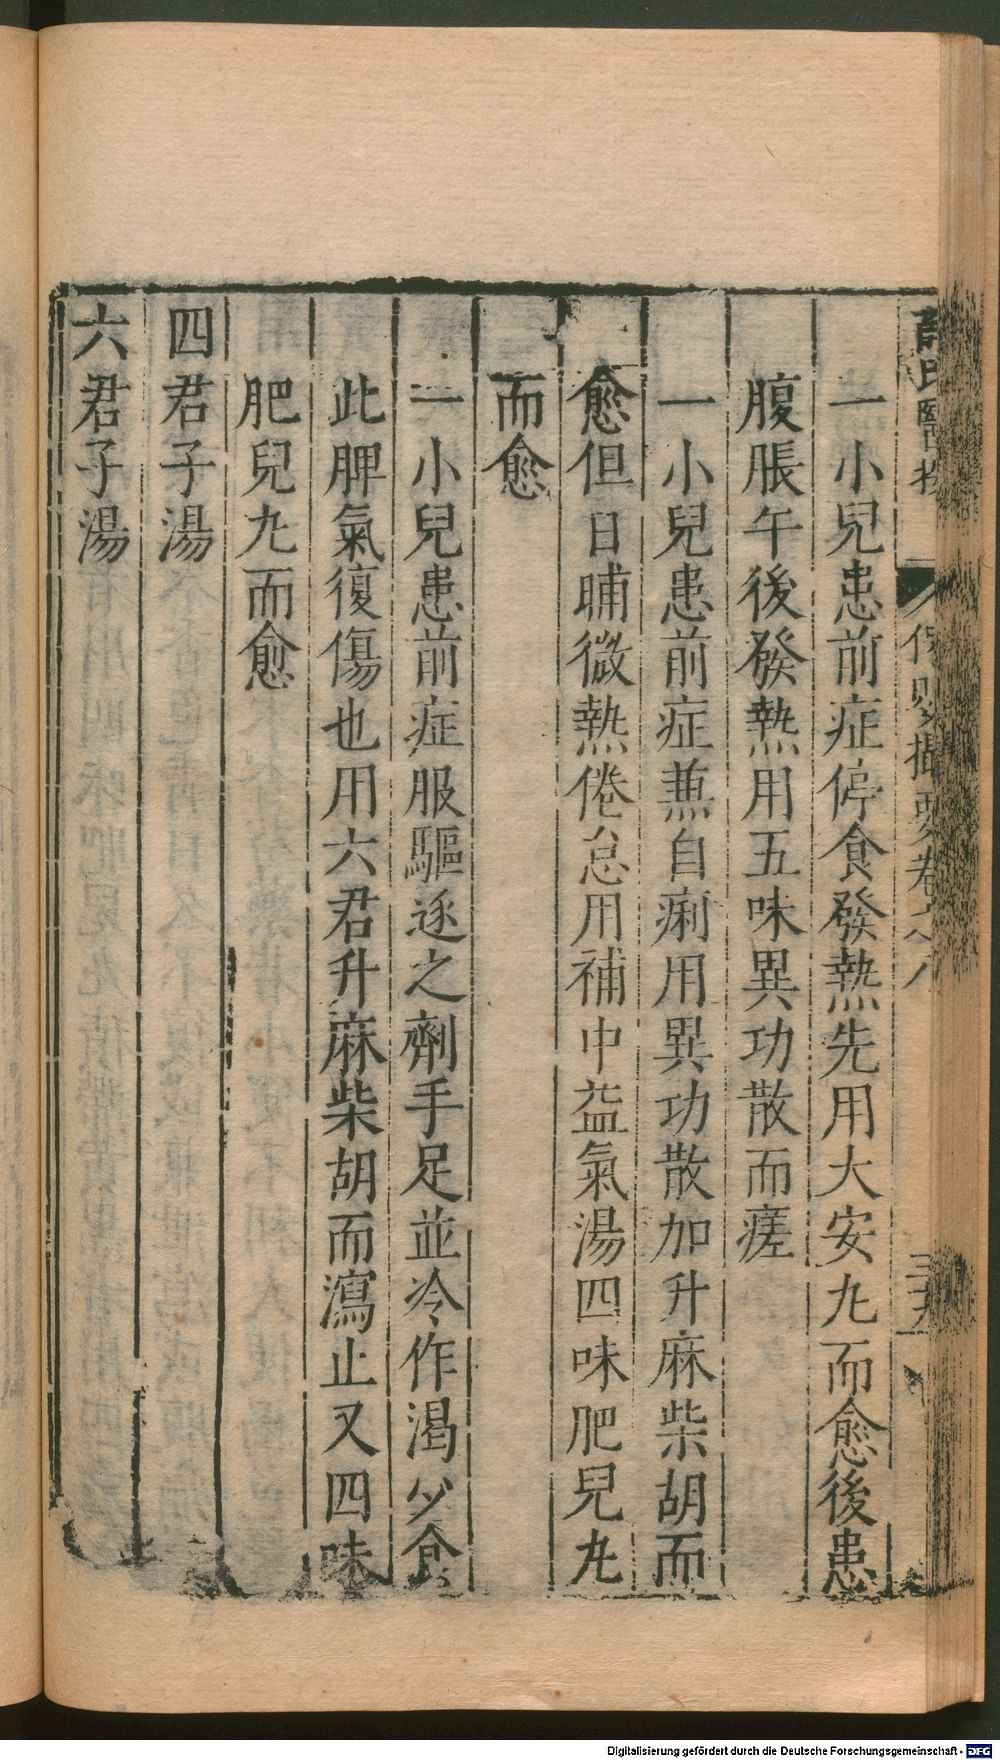 薛氏醫按 保嬰撮要卷之八
一小兒患前症停食發熱先用大安九而愈後患
腹脹午後發熱用五味異功散而瘥
一小兒患前症兼自痢用異功散加升麻柴胡而
愈但日晡微熱倦怠用補中益氣湯四味肥兒九
而愈
一小兒患前症服驅逐之劑手足並冷作渴少食
此脾氣復傷也用六君升麻柴胡而瀉止又四味
肥兒九而愈
四君子湯
六君子湯
Digitalisierung gefördert durch die Deutsche Forschungsgemeinschaft - DFG